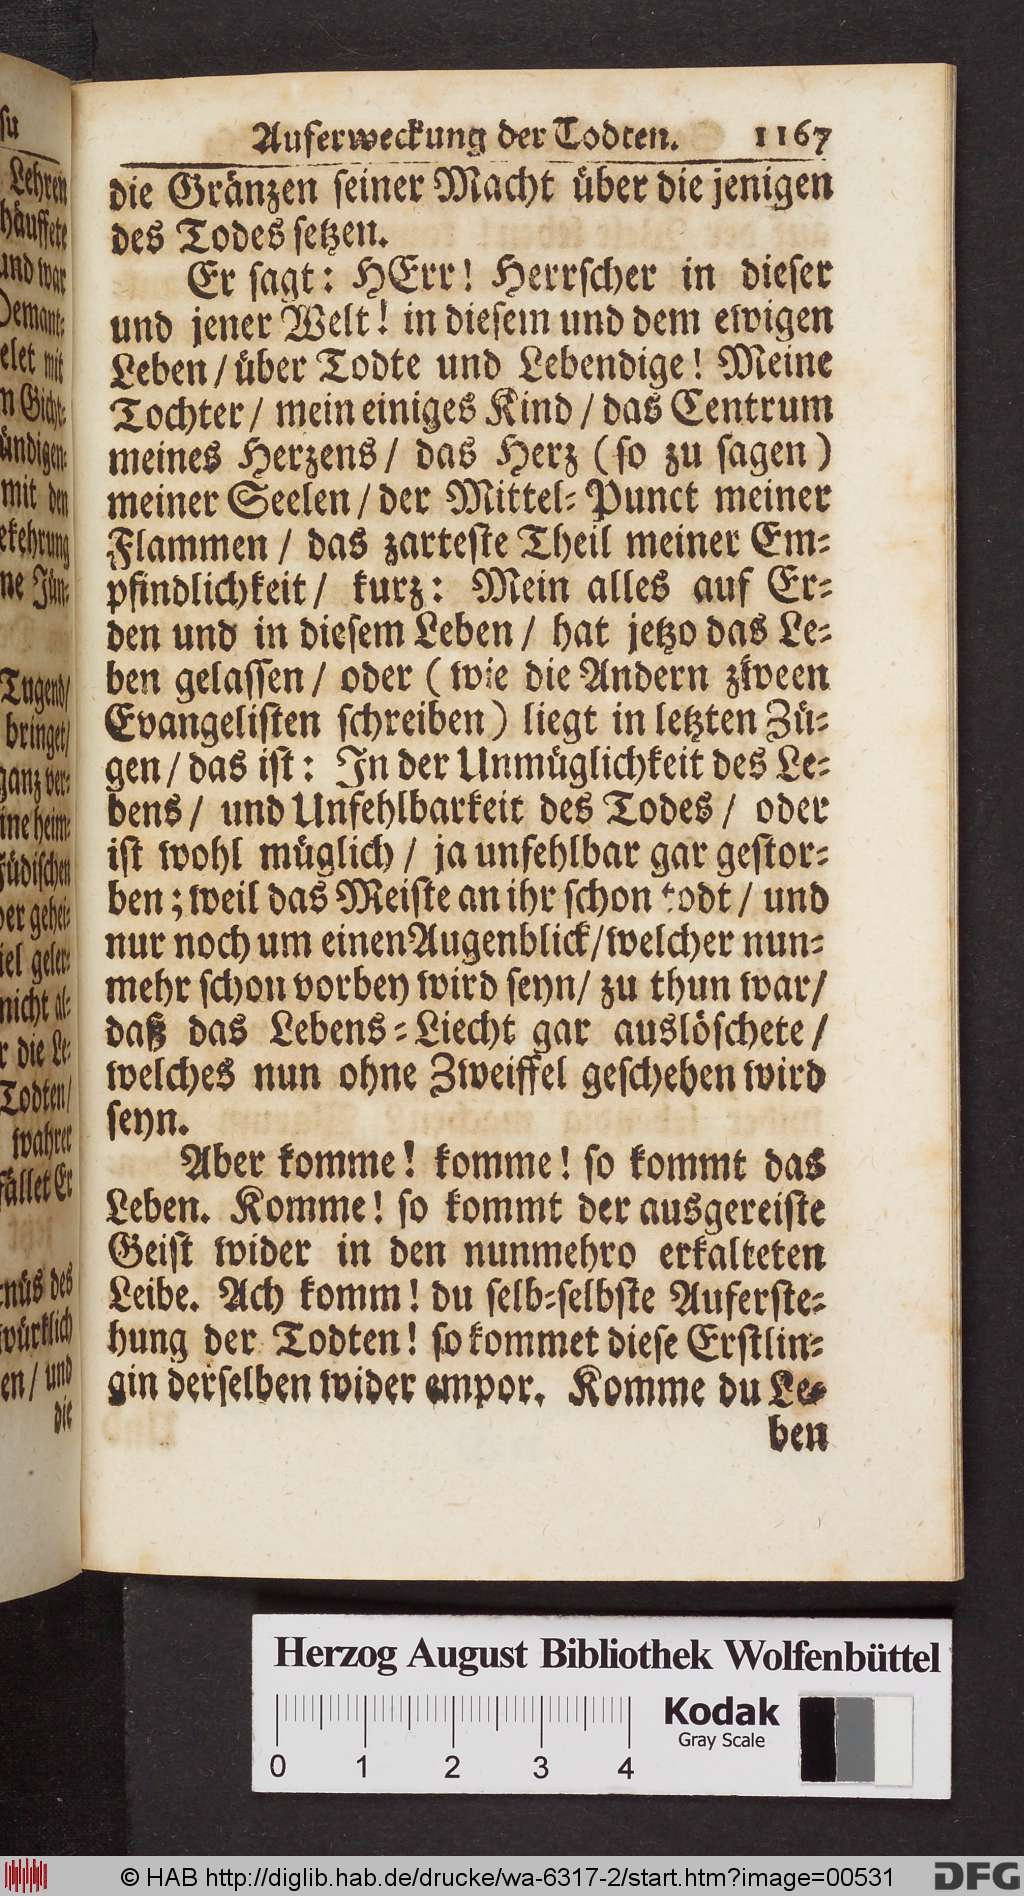 su
Lehren
häuffete
und war
Demant-
elet mit
n Gicht-
ündigen-
mit den
ekehrung
ne Jün-
Tugend/
bringet/
ganz ver-
ine heim-
Jüdischen
er gehei-
iel geler-
nicht al-
r die Le-
Todten/
wahrer
fället Er
nüs des
würklich
en/ und
die
Auferweckung der Todten. 1167
die Gränzen seiner Macht über die jenigen
des Todes setzen.
Er sagt: HErr! Herrscher in dieser
und jener Welt! in diesem und dem ewigen
Leben / über Todte und Lebendige! Meine
Tochter / mein einiges Kind / das Centrum
meines Herzens / das Herz (so zu sagen)
meiner Seelen / der Mittel-Punct meiner
Flammen / das zarteste Theil meiner Em-
pfindlichkeit / kurz: Mein alles auf Er-
den und in diesem Leben / hat jetzo das Le-
ben gelassen / oder (wie die Andern zween
Evangelisten schreiben) liegt in letzten Zü-
gen / das ist: In der Unmüglichkeit des Le-
bens / und Unfehlbarkeit des Todes / oder
ist wohl müglich / ja unfehlbar gar gestor-
ben; weil das Meiste an ihr schon todt / und
nur noch um einen Augenblick / welcher nun-
mehr schon vorbey wird seyn / zu thun war /
daß das Lebens-Liecht gar auslöschete /
welches nun ohne Zweiffel geschehen wird
seyn.
Aber komme! komme! so kommt das
Leben. Komme! so kommt der ausgereiste
Geist wider in den nunmehro erkalteten
Leibe. Ach komm! du selb-selbste Auferste-
hung der Todten! so kommet diese Erstlin-
gin derselben wider empor. Komme du Le-
ben
Herzog August Bibliothek Wolfenbüttel
Kodak
Gray Scale
0 1 2 3 4
© HAB http://diglib.hab.de/drucke/wa-6317-2/start.htm?image=00531
DFG